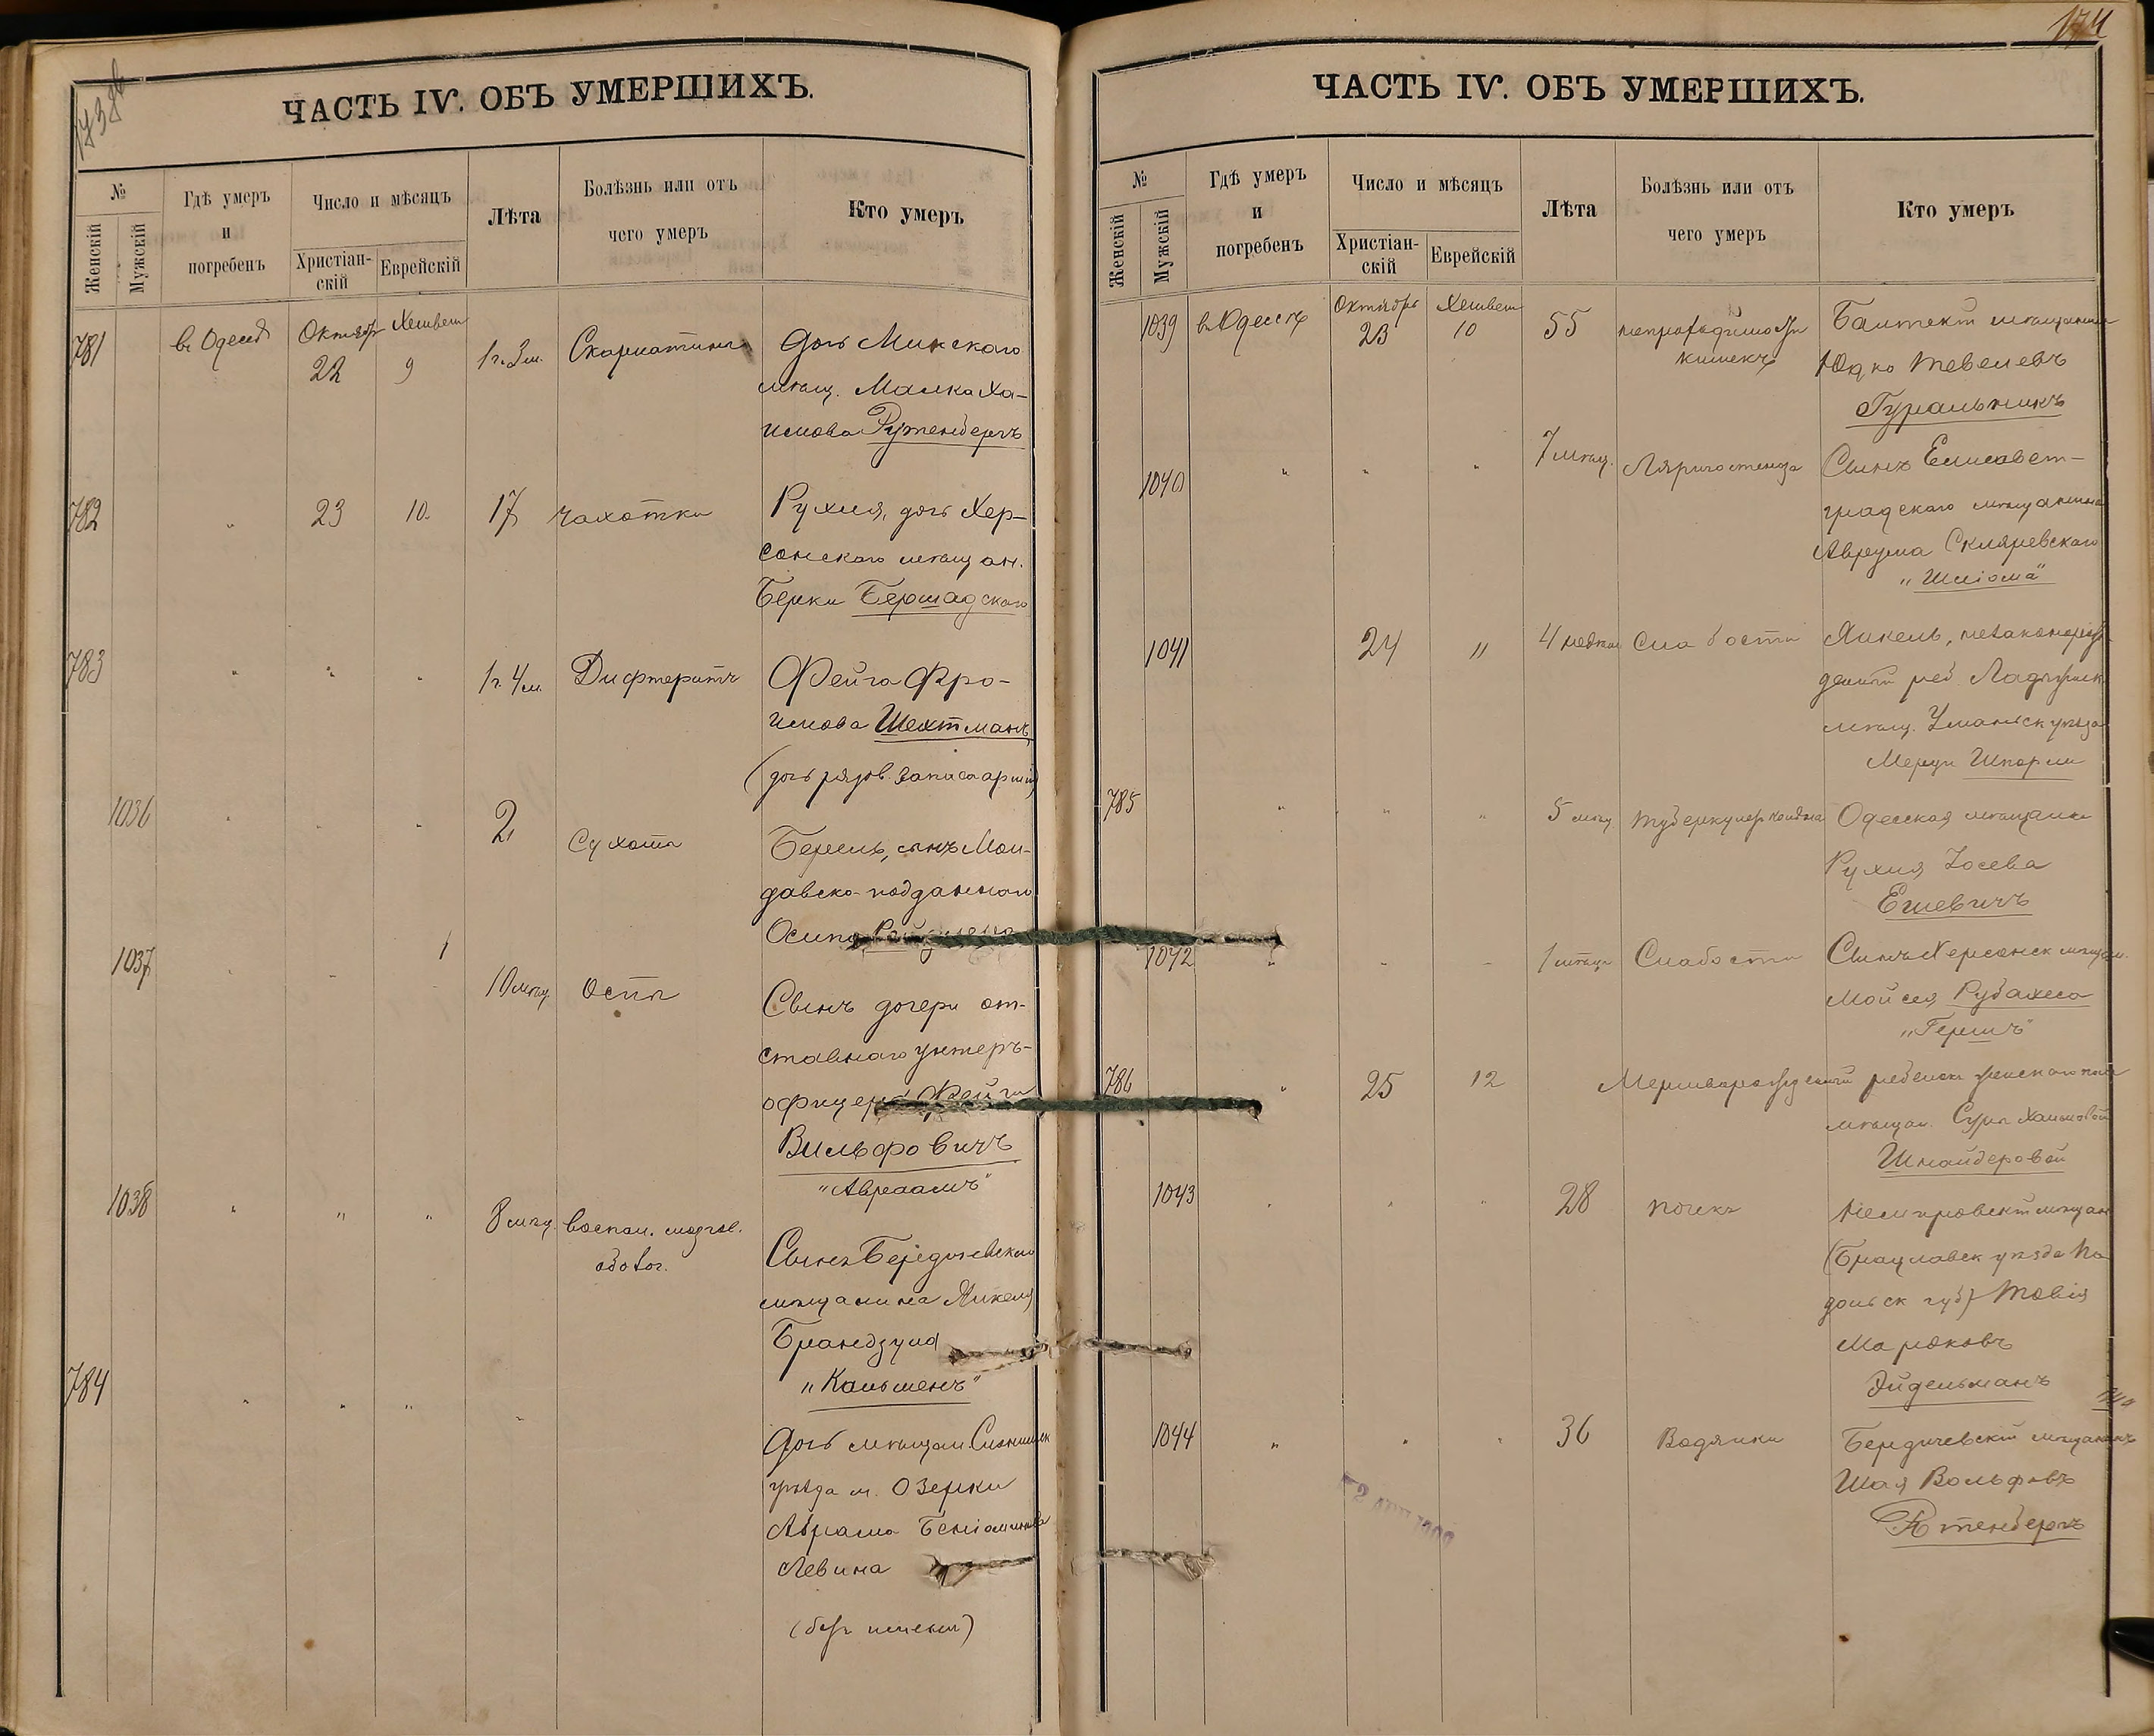 173 об
ЧАСТЬ IV. ОБЪ УМЕРШИХЪ.
№
Женскій
Мужскій
Гдѣ умеръ
и
погребенъ
Число и мѣсяцъ
Христіан-
скій
Еврейскій
Лѣта
Болѣзнь или отъ
чего умеръ
Кто умеръ
781
в Одессѣ
Октябр
22
Хешвен
9
1 г. 3 м.
Скарлатина
Дочь Минскаго
мѣщ. Малка Ха-
имова Рутенбергъ
782
"
23
10
17
чахотки
Рухля, дочь Хер-
сонскаго мѣщан.
Берки Бершадскаго
783
"
"
"
1 г. 4 м.
Дифтеритъ
Фейга Фро-
имова Шехтманъ
(дочь рядов. запаса арміи)
1036
"
"
"
2
Сухоты
Берель, сынъ Мол-
давско-подданнаго
Осипа
1037
"
"
"
10 мѣц.
Оспы
Сынъ дочери от-
ставнаго унтеръ-
офицера Фейги
Вильфовичъ
"Авраамъ"
1038
"
"
"
8 мѣц.
воспал. мозгов.
оболоч.
Сынъ Бердичевскаго
мѣщанина Янкеля
Брандзула
"Кальменъ"
784
"
"
"
"
Дочь мѣщан. Слонимск
уѣзда м. Озерки
Абрама Беніаминова
Левина
(безъ имени)
174
ЧАСТЬ IV. ОБЪ УМЕРШИХЪ.
№
Женскій
Мужскій
Гдѣ умеръ
и
погребенъ
Число и мѣсяцъ
Христіан-
скій
Еврейскій
Лѣта
Болѣзнь или отъ
чего умеръ
Кто умеръ
1039
в Одессѣ
Октябрь
23
Хешвен
10
55
непроходимости
кишекъ
Балтскій мѣщанин
Юдко Тевелевъ
Гуральникъ
1040
"
"
"
7 мѣсц.
Лярингостеноза
Сынъ Елисавет-
градскаго мѣщанина
Аврума Скляревскаго
"Шліома"
1041
24
11
4 недѣли
Слабости
Янкель, незаконорож-
денный реб. Ладыжинск
мѣщ. Уманьск уѣзда
Мерци Шпорли
785
"
"
"
5 мѣсц
туберкулез
Одесская мѣщанка
Рухля Іосева
Егіевичъ
1042
"
"
"
1 мѣсяц
Слабости
Сынъ Херсонск мѣщан.
Мойсея Рубахеса
"Гершъ"
786
"
25
12
Мертворожденный ребенокъ женскаго пола
мѣщан. Суры Хаимовой
Шнайдеровой
1043
"
"
"
28
почекъ
Немировскій мѣщан
(Брацлавск уѣзда По
дольск губ) Товія
Марковъ
Эйдельманъ
1044
"
"
"
36
Водянки
Бердичевскій мѣщанинъ
Шая Вольфовъ
Ятенбергъ